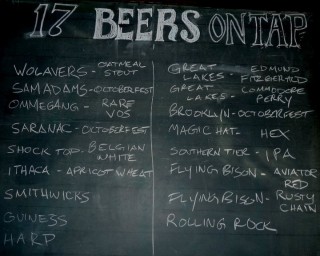 17 BEERS ON TAP
WOLAVERS - OATMEAL STOUT
SAM ADAMS - OCTOBERFEST
OMMEGANG - RARE VOS
SARANAC - OCTOBERFEST
SHOCK TOP - BELGIAN WHITE
ITHACA - APRICOT WHEAT
SMITHWICKS
GUINESS
HARP
GREAT LAKES - EDMUND FITZGERALD
GREAT LAKES - COMMODORE PERRY
BROOKLYN - OCTOBERFEST
MAGIC HAT - HEX
SOUTHERN TIER - IPA
FLYING BISON - AVIATOR RED
FLYING BISON - RUSTY CHAIN
ROLLING ROCK